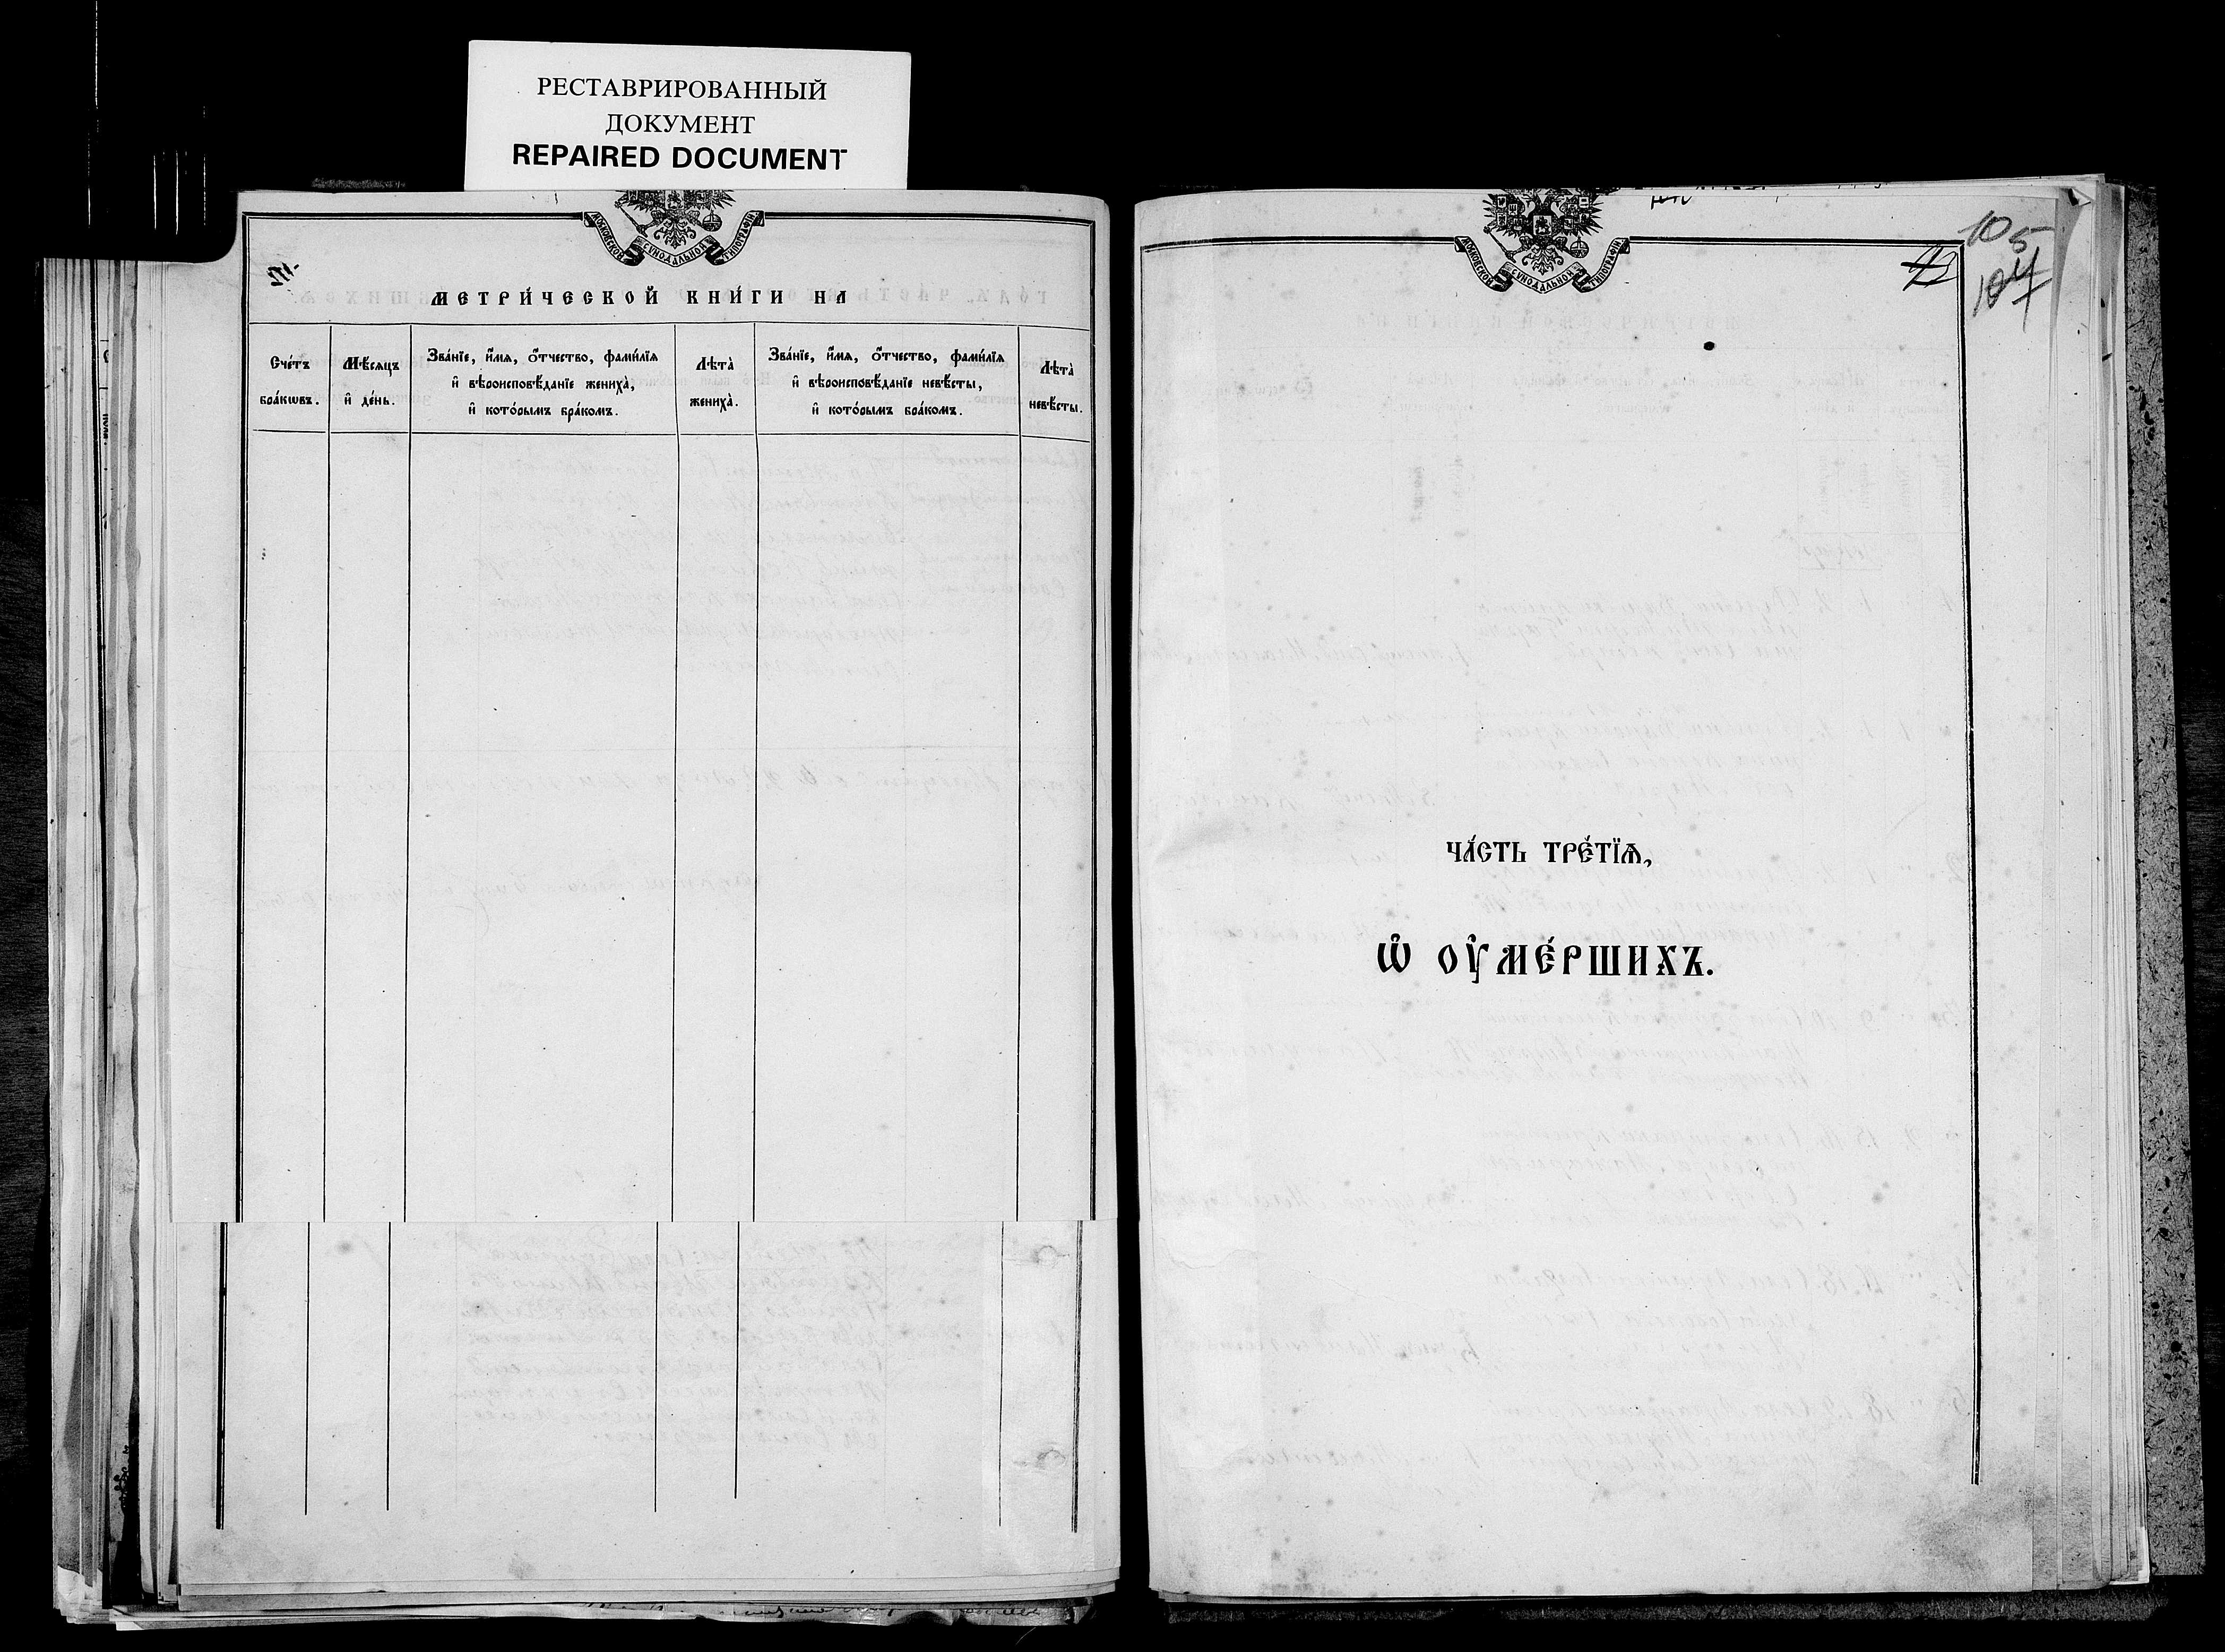 РЕСТАВРИРОВАННЫЙ
ДОКУМЕНТ
REPAIRED DOCUMENT
МОСКОВСКОЙ СѴНОДАЛЬНОЙ ТИПОГРАФІИ
МЕТРИ́ЧЕСКОЙ КНИ́ГИ НА
Сче́тъ
бра́кѡвъ.
Мѣ́сяцъ
и҆ де́нь.
Зва́нїе, и҆́мѧ, ѻ҆́тчество, фами́лїѧ
и҆ вѣроисповѣ́данїе жениха̀,
и҆ кото́рымъ бра́комъ.
Лѣта̀
жениха̀.
Зва́нїе, и҆́мѧ, ѻ҆́тчество, фами́лїѧ
и҆ вѣроисповѣ́данїе невѣ́сты,
и҆ кото́рымъ бра́комъ.
Лѣта̀
невѣ́сты.
МОСКОВСКОЙ СѴНОДАЛЬНОЙ ТИПОГРАФІИ
105
ЧА́СТЬ ТРЕ́ТЇѦ,
Ѽ ОУ҆МЕ́РШИХЪ.